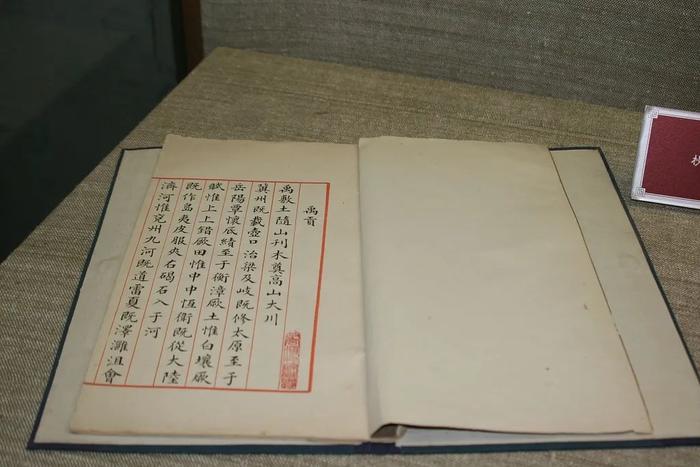 禹貢
禹敷土隨山刊木奠高山大川
冀州既載壺口治梁及岐既修太原至于
岳陽覃懷厎績至于衡漳厥土惟白壤厥
賦惟上上錯厥田惟中中恆衛既從大陸
既作島夷皮服夾右碣石入于河
濟河惟兗州九河既道雷夏既澤灉沮會